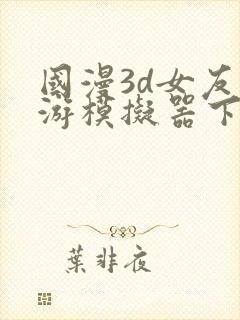 國漫3d女友
游模擬器下
葉非夜